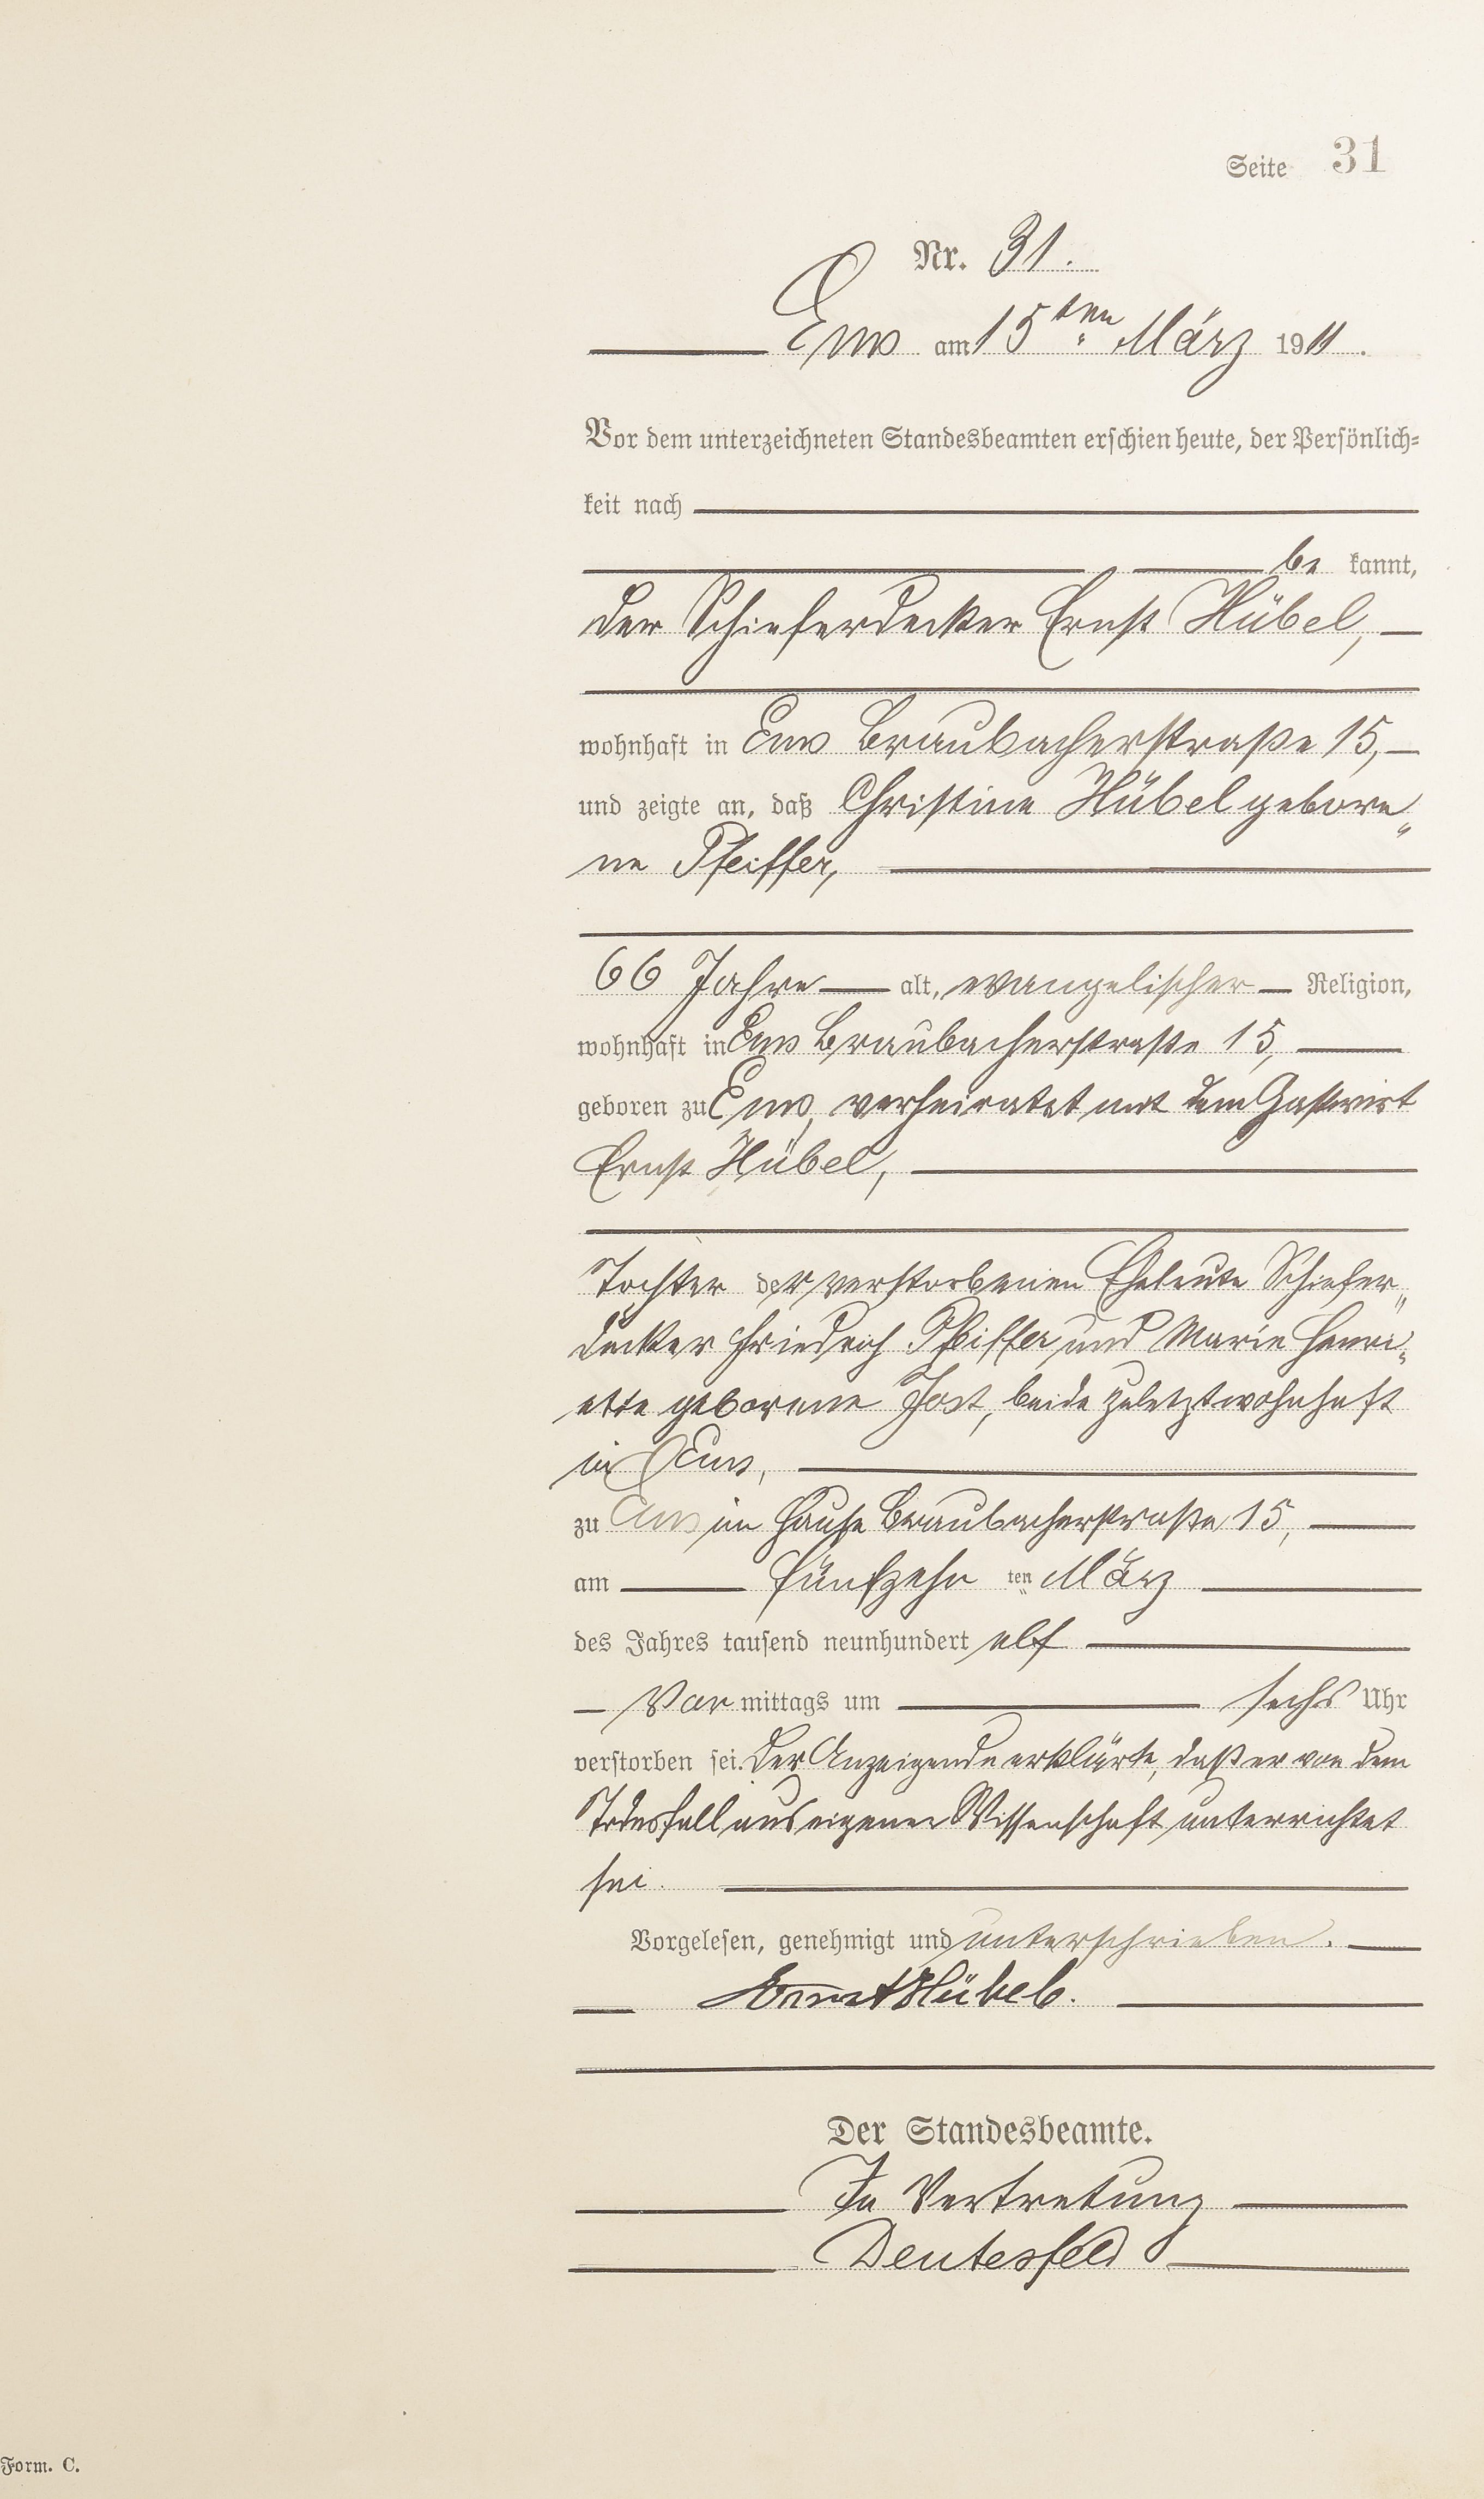 Seite 31
Nr. 31.
Ems am 15ten März 1911.
Vor dem unterzeichneten Standesbeamten erschien heute, der Persönlich=
keit nach
be kannt,
der Schieferdecker Ernst Hübel,
wohnhaft in Ems Braubacherstraße 15,
und zeigte an, daß Christine Hübel gebore„
ne Pfeiffer,
66 Jahre alt, evangelischer Religion,
wohnhaft in Ems Braubacherstraße 15,
geboren zu Ems, verheiratet mit dem Gastwirt
Ernst Hübel,
Tochter der verstorbenen Eheleute Schiefer„
decker Friedrich Pfeiffer und Marie Henri„
ette geborene Jost, beide zuletzt wohnhaft
in Ems,
zu Ems im Hause Braubacherstraße 15,
am fünfzehn ten März
des Jahres tausend neunhundert elf
Vor mittags um sechs Uhr
verstorben sei. Der Anzeigende erklärte, daß er von dem
Todesfall aus eigener Wissenschaft unterrichtet
sei.
Vorgelesen, genehmigt und unterschrieben.
Ernst Hübel.
Der Standesbeamte.
In Vertretung
Deutesfeld
Form. C.